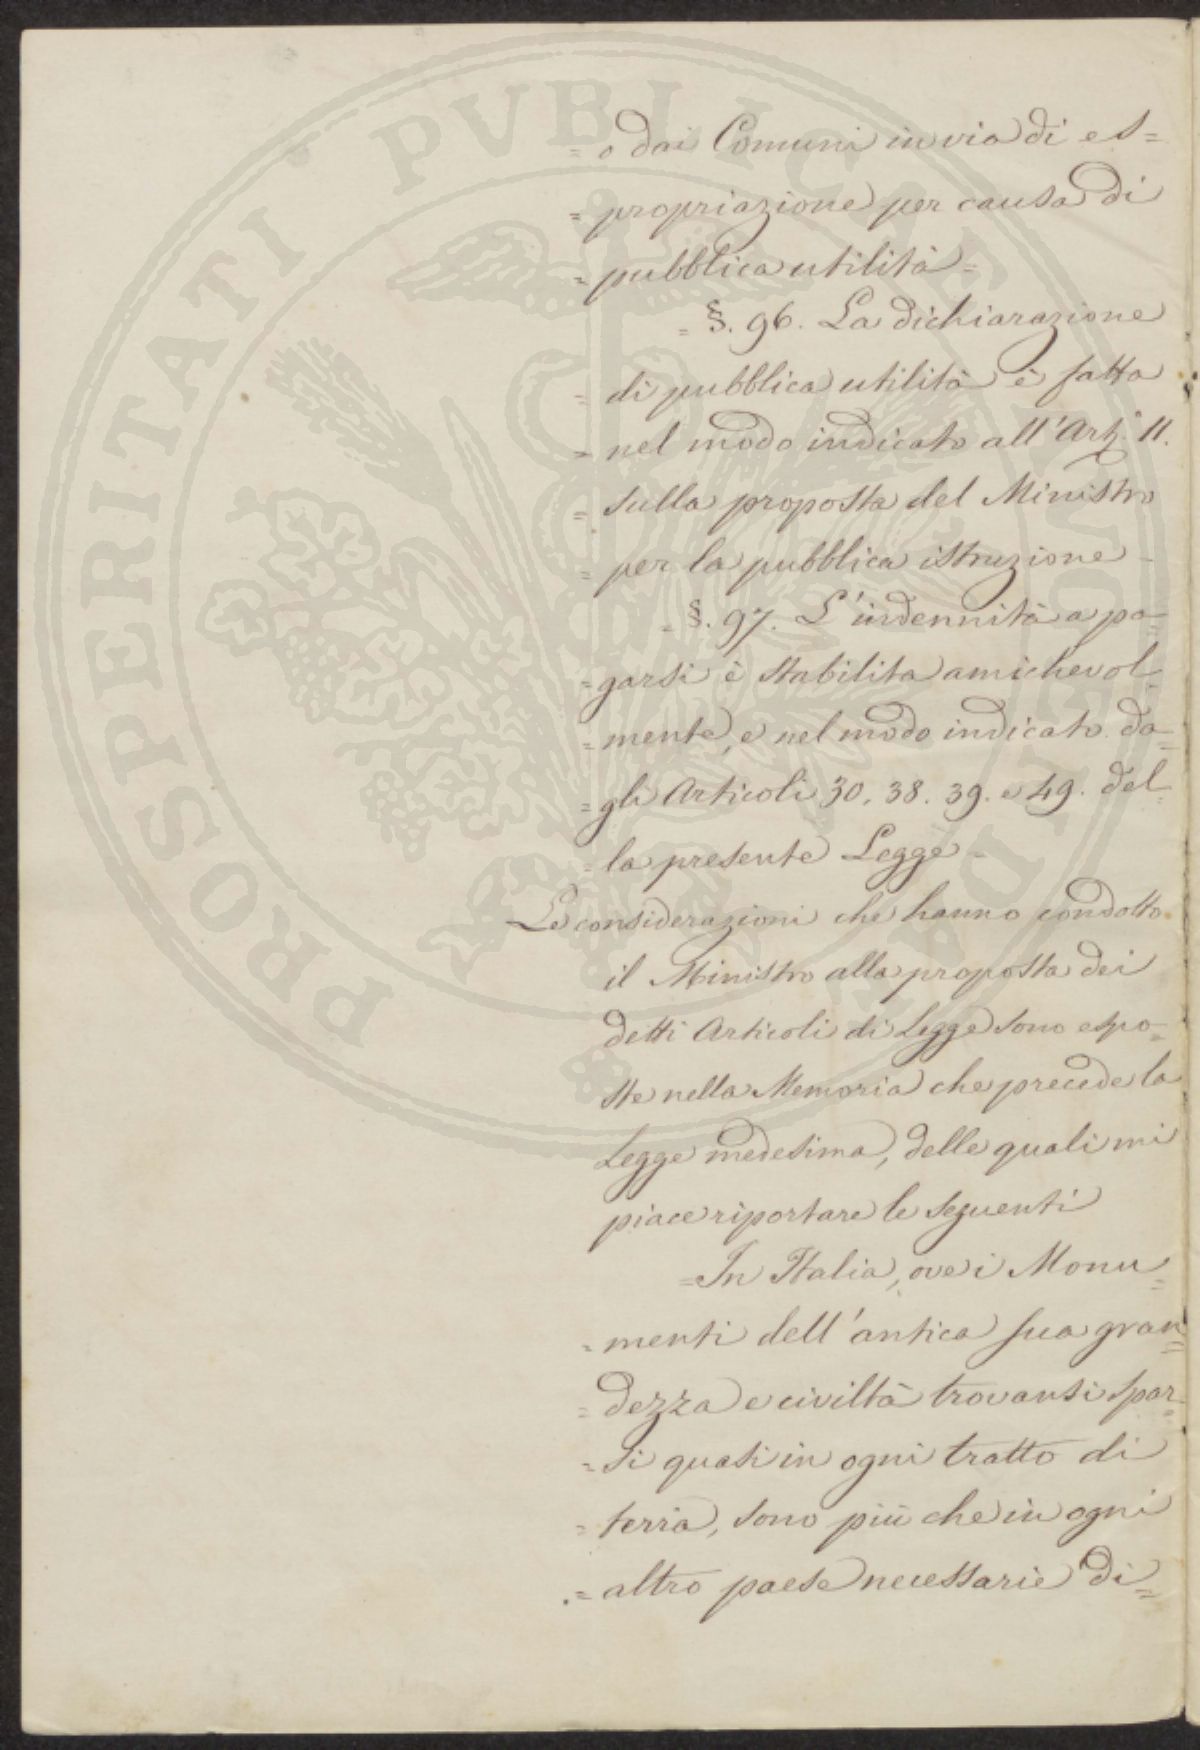 = o dai Comuni in via di es=
= propriazione per causa di
= pubblica utilità =
= §. 96. La dichiarazione
= di pubblica utilità è fatta
= nel modo indicato all'Art. 11.
= sulla proposta del Ministro
= per la pubblica istruzione -
= §. 97. L'indennità a pa=
= garsi è stabilita amichevol=
= mente, e nel modo indicato da=
= gli Articoli 30. 38. 39. e 49. del=
= la presente Legge -
Le considerazioni che hanno condotto
il Ministro alla proposta dei
detti Articoli di Legge sono espo=
ste nella Memoria che precede la
Legge medesima, delle quali mi
piace riportare le seguenti
= In Italia, ove i Monu=
= menti dell'antica sua gran=
= dezza e civiltà trovansi spar=
= si quasi in ogni tratto di
= terra, sono più che in ogni
= altro paese necessarie di=
PROSPERITATI PVBLICAE